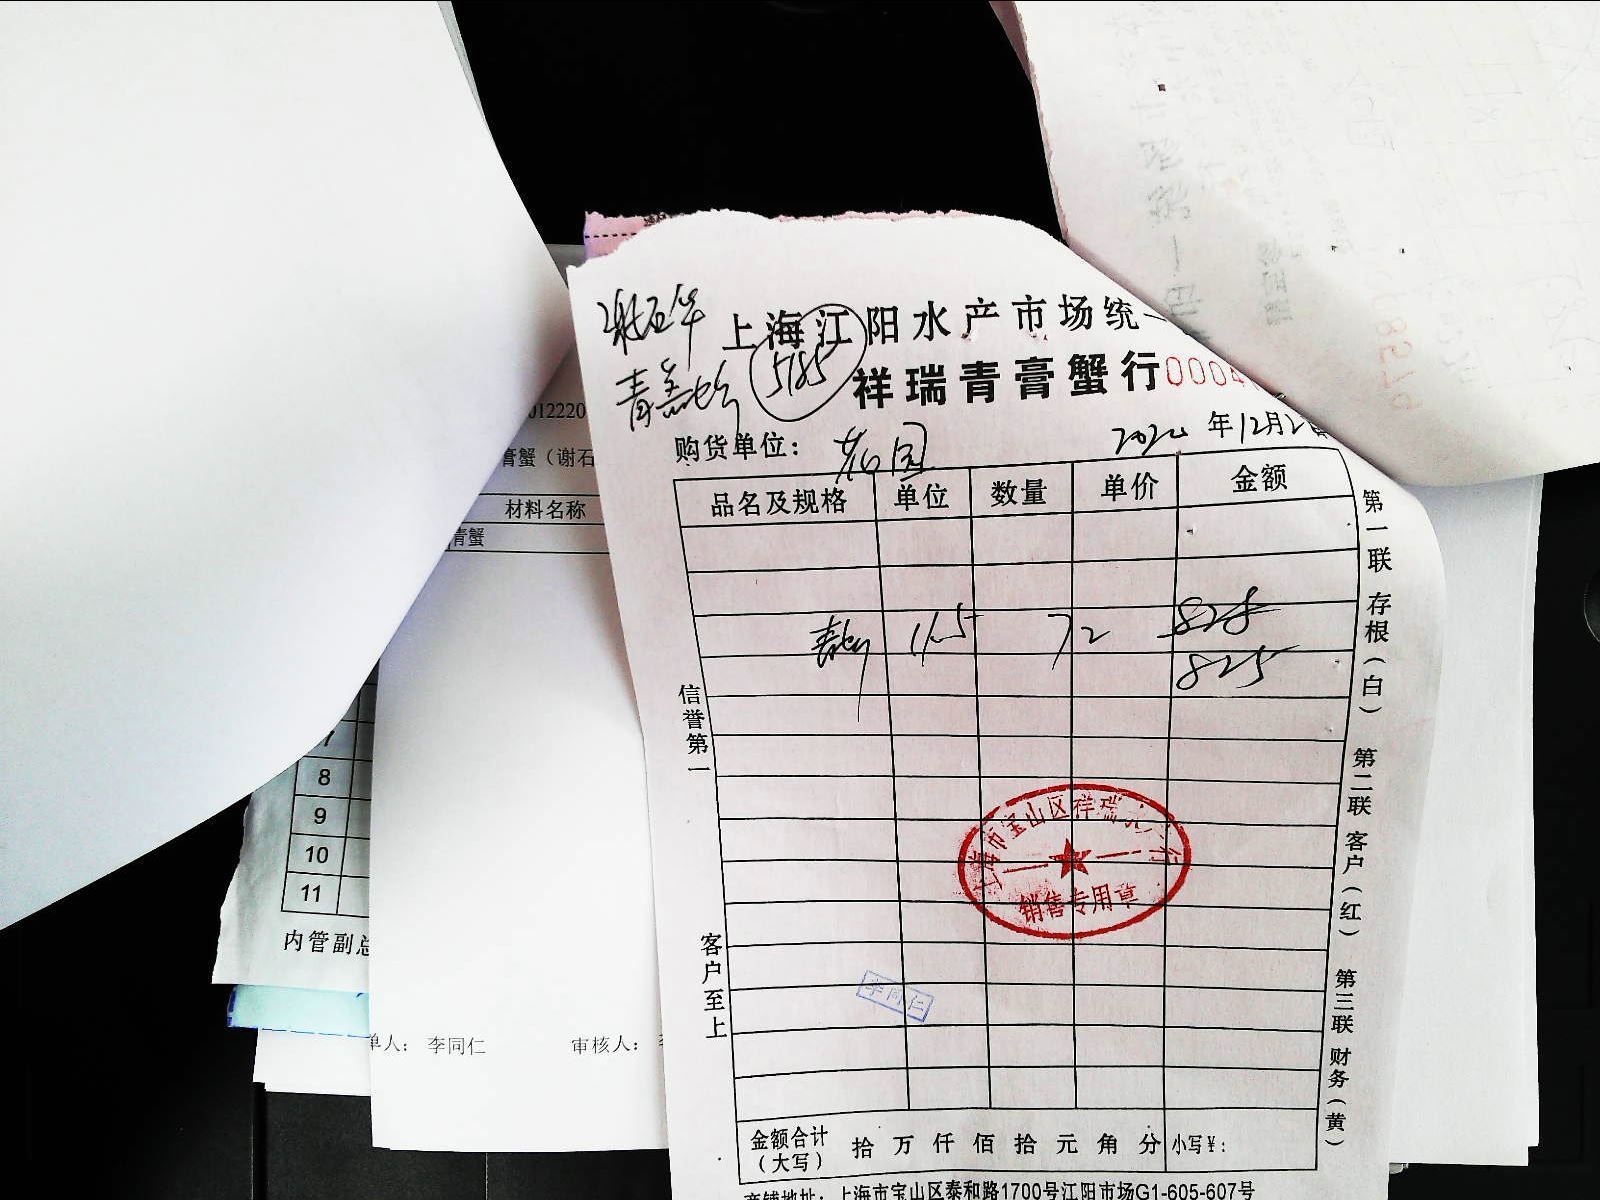 谢石华
上海江阳水产市场统一
青膏蟹 5185
祥瑞青膏蟹行 0004
购货单位： 花园
年12月2
品名及规格 单位 数量 单价 金额
11.5 72 828
825
第一联 存根（白） 第二联 客户（红） 第三联 财务（黄）
信誉第一 客户至上
上海市宝山区祥瑞水产行
销售专用章
李同仁
金额合计（大写） 拾 万 仟 佰 拾 元 角 分 小写¥：
商铺地址：上海市宝山区泰和路1700号江阳市场G1-605-607号
01220
膏蟹（谢石
材料名称
青蟹
7
8
9
10
11
内管副总
单人： 李同仁 审核人：